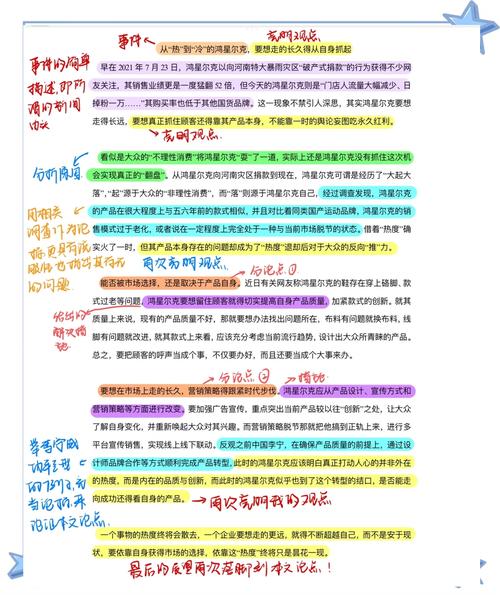 事件 亮明观点
从“热”到“冷”的鸿星尔克，要想走的长久得从自身抓起
事件的简单
描述，即所
谓的新闻
由头
早在 2021 年 7 月 23 日，鸿星尔克以向河南特大暴雨灾区“破产式捐款”的行为获得不少网
友关注，其销售业绩更是一度猛翻 52 倍，但今天的鸿星尔克则是“门店人流量大幅减少、日
掉粉一万……”其购买率也低于其他国货品牌。这一现象不禁引人深思，其实鸿星尔克要想
走得长远，要想真正抓住顾客还得靠其产品本身，不能靠一时的舆论妄图吃永久红利。
亮明观点
分析原因
看似是大众的“不理性消费”将鸿星尔克“耍”了一道，实际上还是鸿星尔克没有抓住这次机
会实现真正的“翻盘”。从鸿星尔克向河南灾区捐款到现在，鸿星尔克可谓是经历了“大起大
落”，“起”源于大众的“非理性消费”，而“落”则源于鸿星尔克自己，经过调查发现，鸿星尔克
的产品在很大程度上与五六年前的款式相似，并且对比看同类国产运动品牌，鸿星尔克的销
售模式过于老化，或者说在一定程度上完全处于一种与当前市场脱节的状态。借着“热度”确
实火了一时，但其产品本身存在的问题却成为了“热度”退却后对于大众的反向“推”力。
用相关
的问题
再次亮明观点
分论点①
能否被市场选择，还是取决于产品自身。近日有关网友称鸿星尔克的鞋存在穿上硌脚、款
式过老等问题，鸿星尔克要想留住顾客就得切实提高自身产品质量，加紧款式的创新，就其
质量上来说，现有的产品质量不好，那就要想办法找出问题所在，布料有问题就换布料，线
脚有问题就改进，就其款式上来看，应该充分考虑当前流行趋势，设计出大众所青睐的产品。
总之，要把顾客的呼声当成个事，不仅要办好，而且还要当成个大事来办。
给出的
解决措
施
分论点② 措施
要想在市场上走的长久，营销策略得跟紧时代步伐。鸿星尔克应从产品设计、宣传方式和
营销策略等方面进行改变。要加强广告宣传，重点突出当前产品较以往“创新”之处，让大众
了解自身变化，并重新唤起大众对其兴趣。而营销策略脱节那就把他搞到正轨上来，进行多
平台宣传销售，实现线上线下联动。反观之前中国李宁，在确保产品质量的前提上，通过设
计师品牌合作等方式顺利完成产品转型，此时的鸿星尔克应该明白真正打动人心的并非外在
的热度，而是内在的品质与创新，而此时的鸿星尔克似乎也到了这个转型的结口，是否能走
向成功还得看自身的产品。
再次亮明我的观点
一个事物的热度终将会散去，一个企业要想走的更远，就得不断超越自己，而不是安于现
状，要依靠自身获得市场的选择，依靠这“热度”终将只是昙花一现。
最后的质里再次落脚到本文论点！